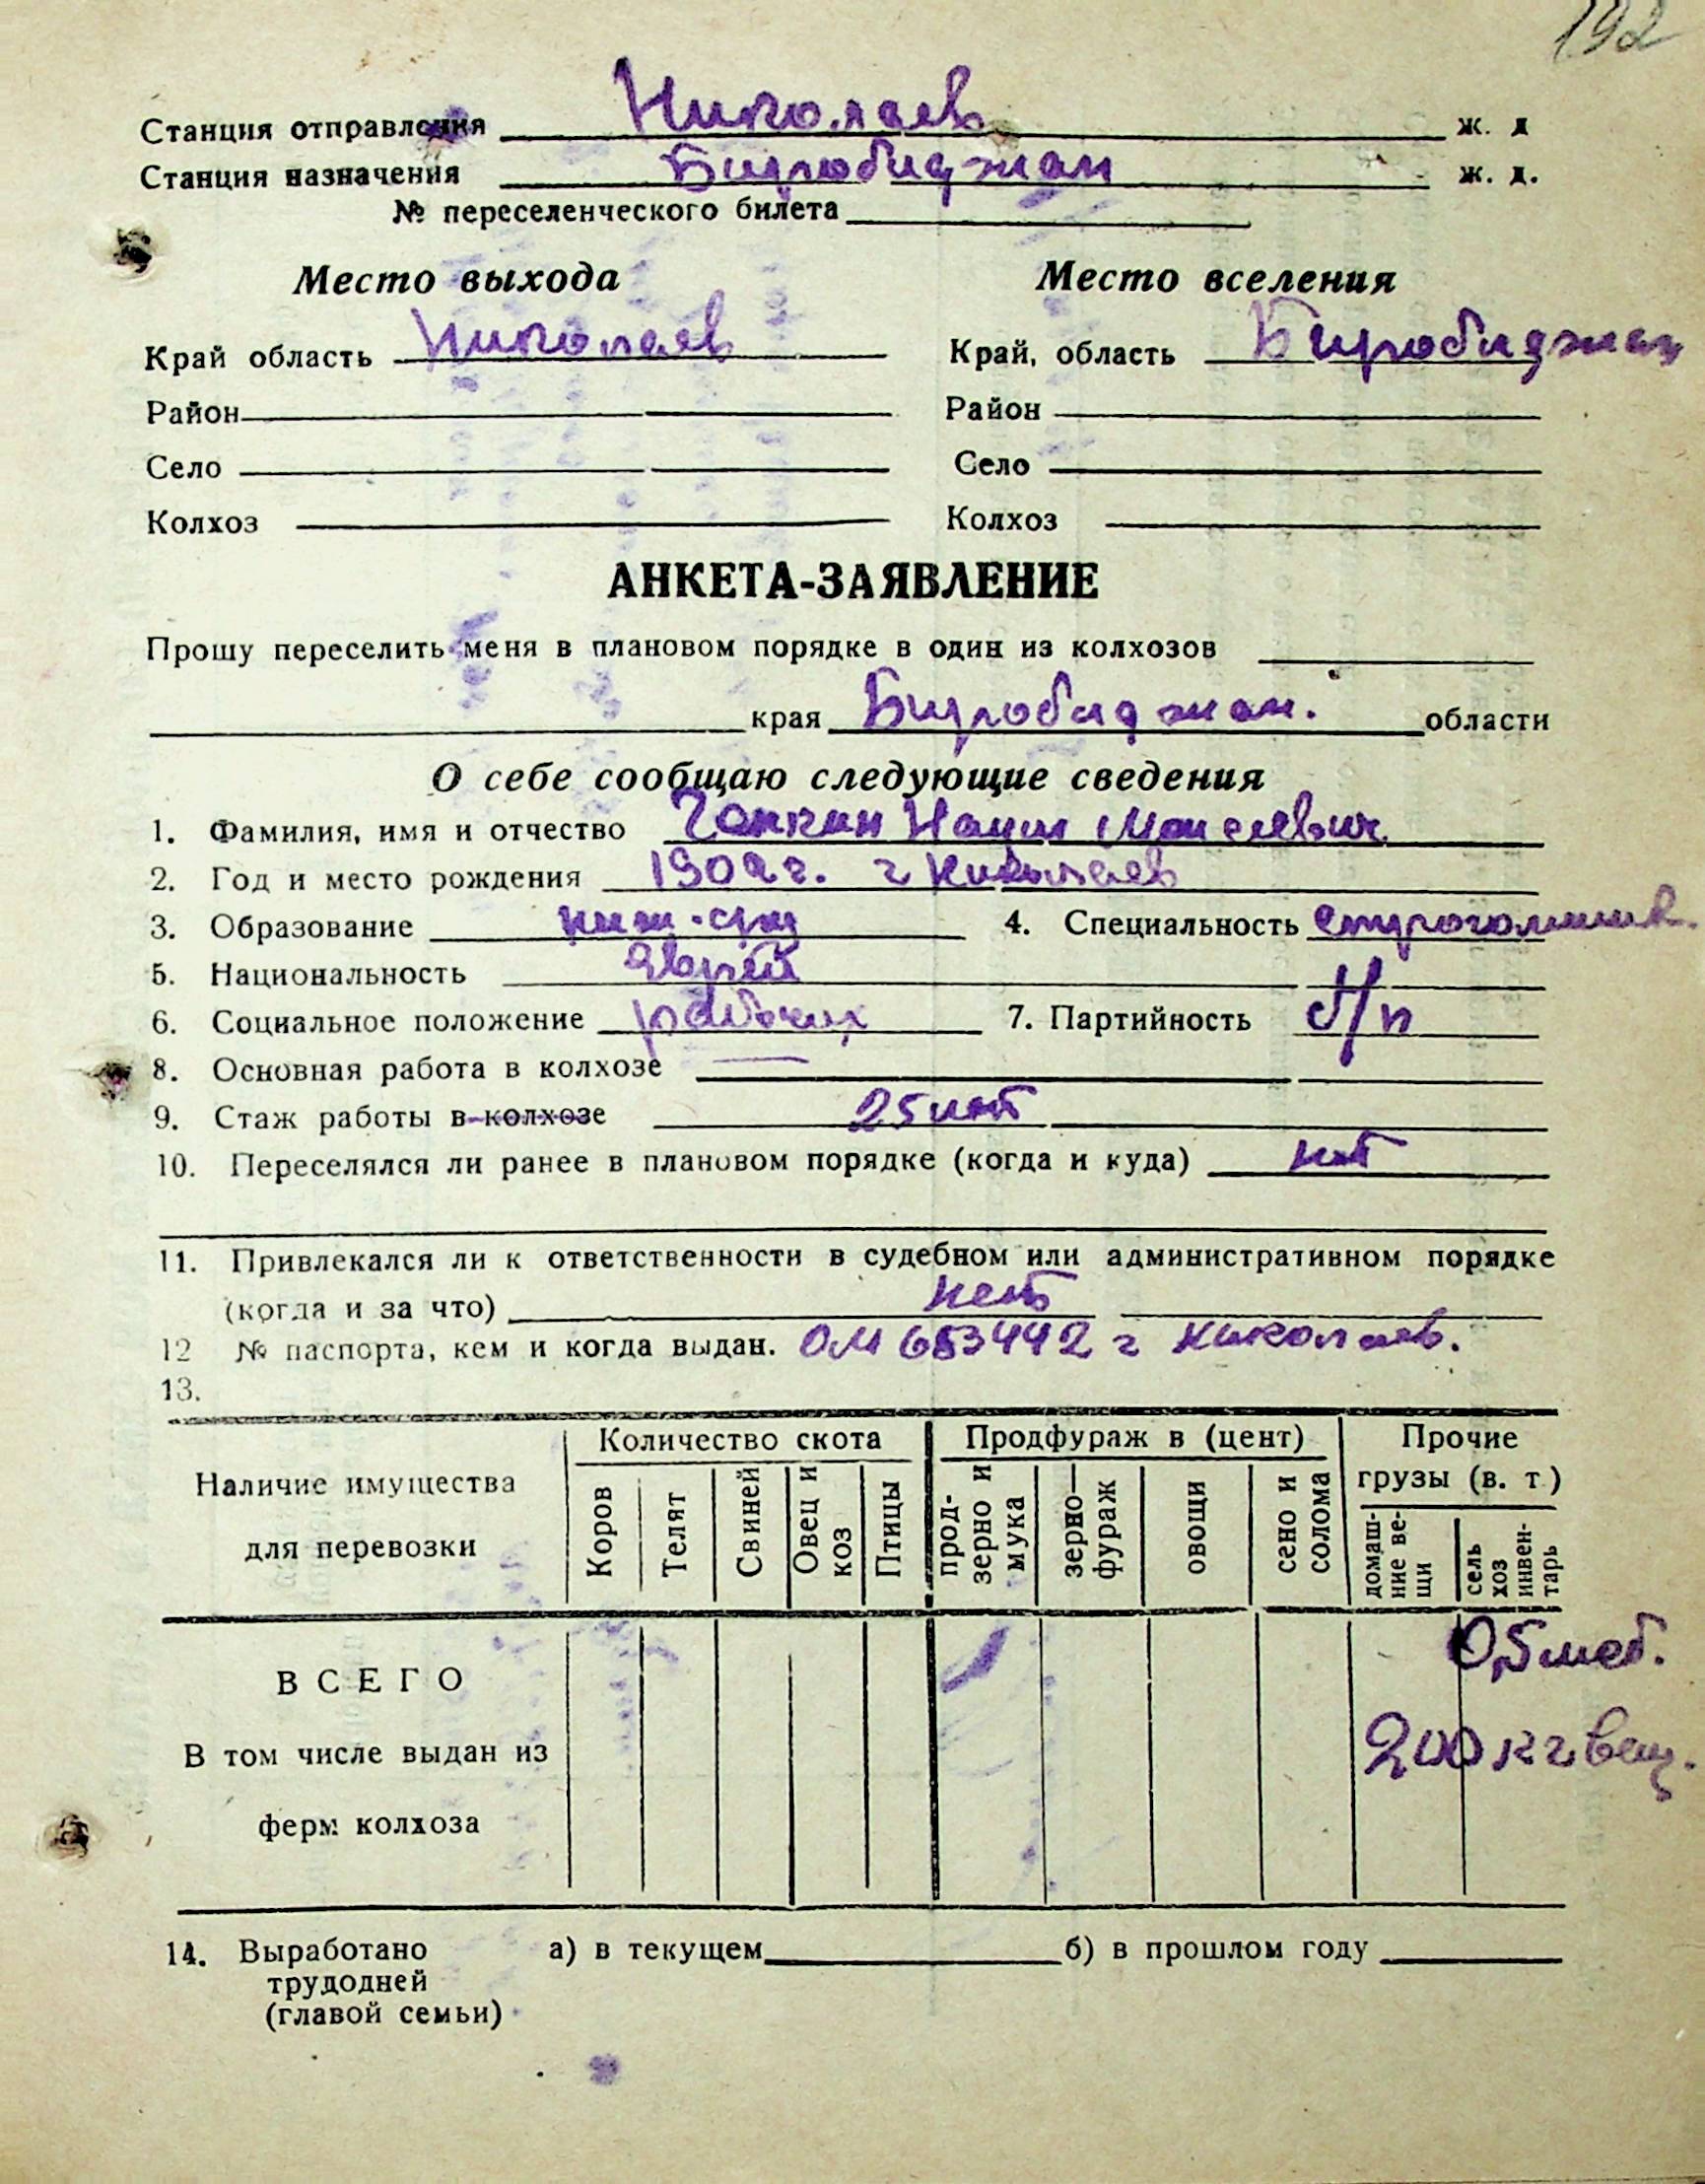 192
Станция отправления Николаев ж. д
Станция назначения Биробиджан ж. д.
№ переселенческого билета
Место выхода Место вселения
Край область Николаев Край, область Биробиджан
Район Район
Село Село
Колхоз Колхоз
АНКЕТА-ЗАЯВЛЕНИЕ
Прошу переселить меня в плановом порядке в один из колхозов
края Биробиджан. области
О себе сообщаю следующие сведения
1. Фамилия, имя и отчество Моисеевич
2. Год и место рождения 1902 г. г Николаев
3. Образование 4. Специальность
5. Национальность Еврей
6. Социальное положение рабочих 7. Партийность б/п
8. Основная работа в колхозе —
9. Стаж работы в колхозе 25 лет
10. Переселялся ли ранее в плановом порядке (когда и куда) нет
11. Привлекался ли к ответственности в судебном или административном порядке
(когда и за что) нет
12 № паспорта, кем и когда выдан. ОМ 683442 г Николаев.
13.
Наличие имущества для перевозки Количество скота Продфураж в (цент) Прочие грузы (в. т.)
Коров Телят Свиней Овец и коз Птицы прод-зерно и мука зерно—фураж овощи сено и солома домаш-ние ве-щи сель хоз инвен-тарь
ВСЕГО 0,5 меб.
В том числе выдан из 200 кг вещ.
ферм колхоза
14. Выработано а) в текущем б) в прошлом году
трудодней
(главой семьи)